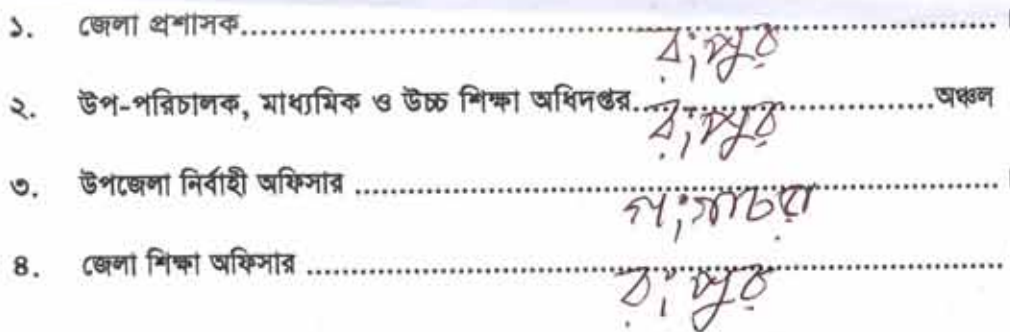 ১. জেলা প্রশাসক..........রংপুর..........।
২. উপ-পরিচালক, মাধ্যমিক ও উচ্চ শিক্ষা অধিদপ্তর..........রংপুর..........অঞ্চল
৩. উপজেলা নির্বাহী অফিসার ..........গংগাচরা..........।
৪. জেলা শিক্ষা অফিসার ..........রংপুর..........